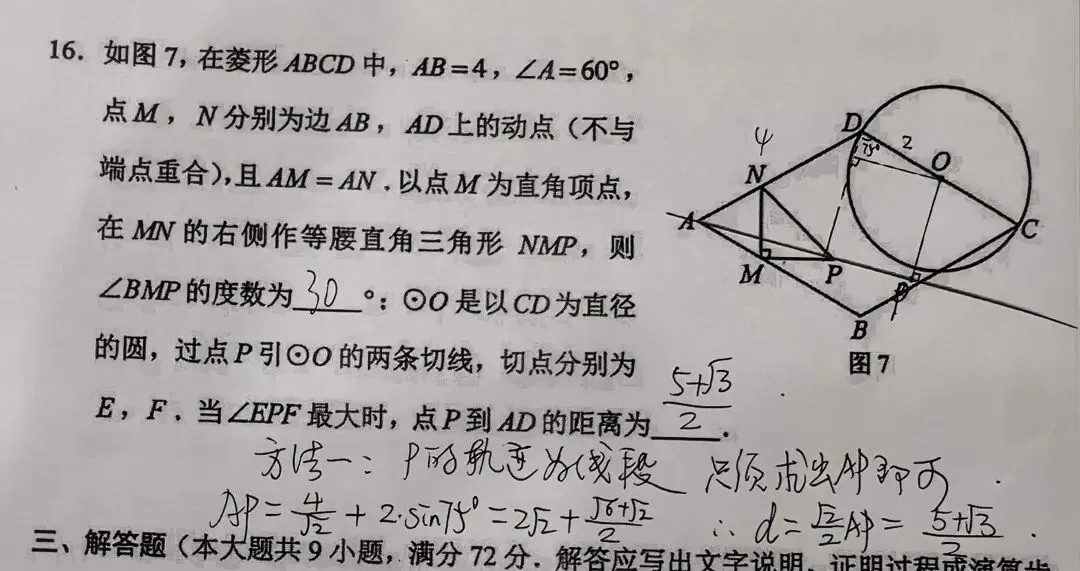 16. 如图7，在菱形ABCD中，AB=4，∠A=60°，
点M，N分别为边AB，AD上的动点（不与
端点重合），且AM=AN．以点M为直角顶点，
在MN的右侧作等腰直角三角形 NMP，则
∠BMP的度数为 30 °；⊙O是以CD为直径
的圆，过点P引⊙O的两条切线，切点分别为
E，F．当∠EPF最大时，点P到AD的距离为 (5+√3)/2 ．
D
4
2
75°
O
N
A
C
M
P
B
图7
方法一：P的轨迹为线段 只须求出AP即可．
AP=4/√2+2·sin75°=2√2+(√6+√2)/2 ∴d=√2/2AP=(5+√3)/2．
三、解答题（本大题共9小题，满分72分．解答应写出文字说明、证明过程或演算步